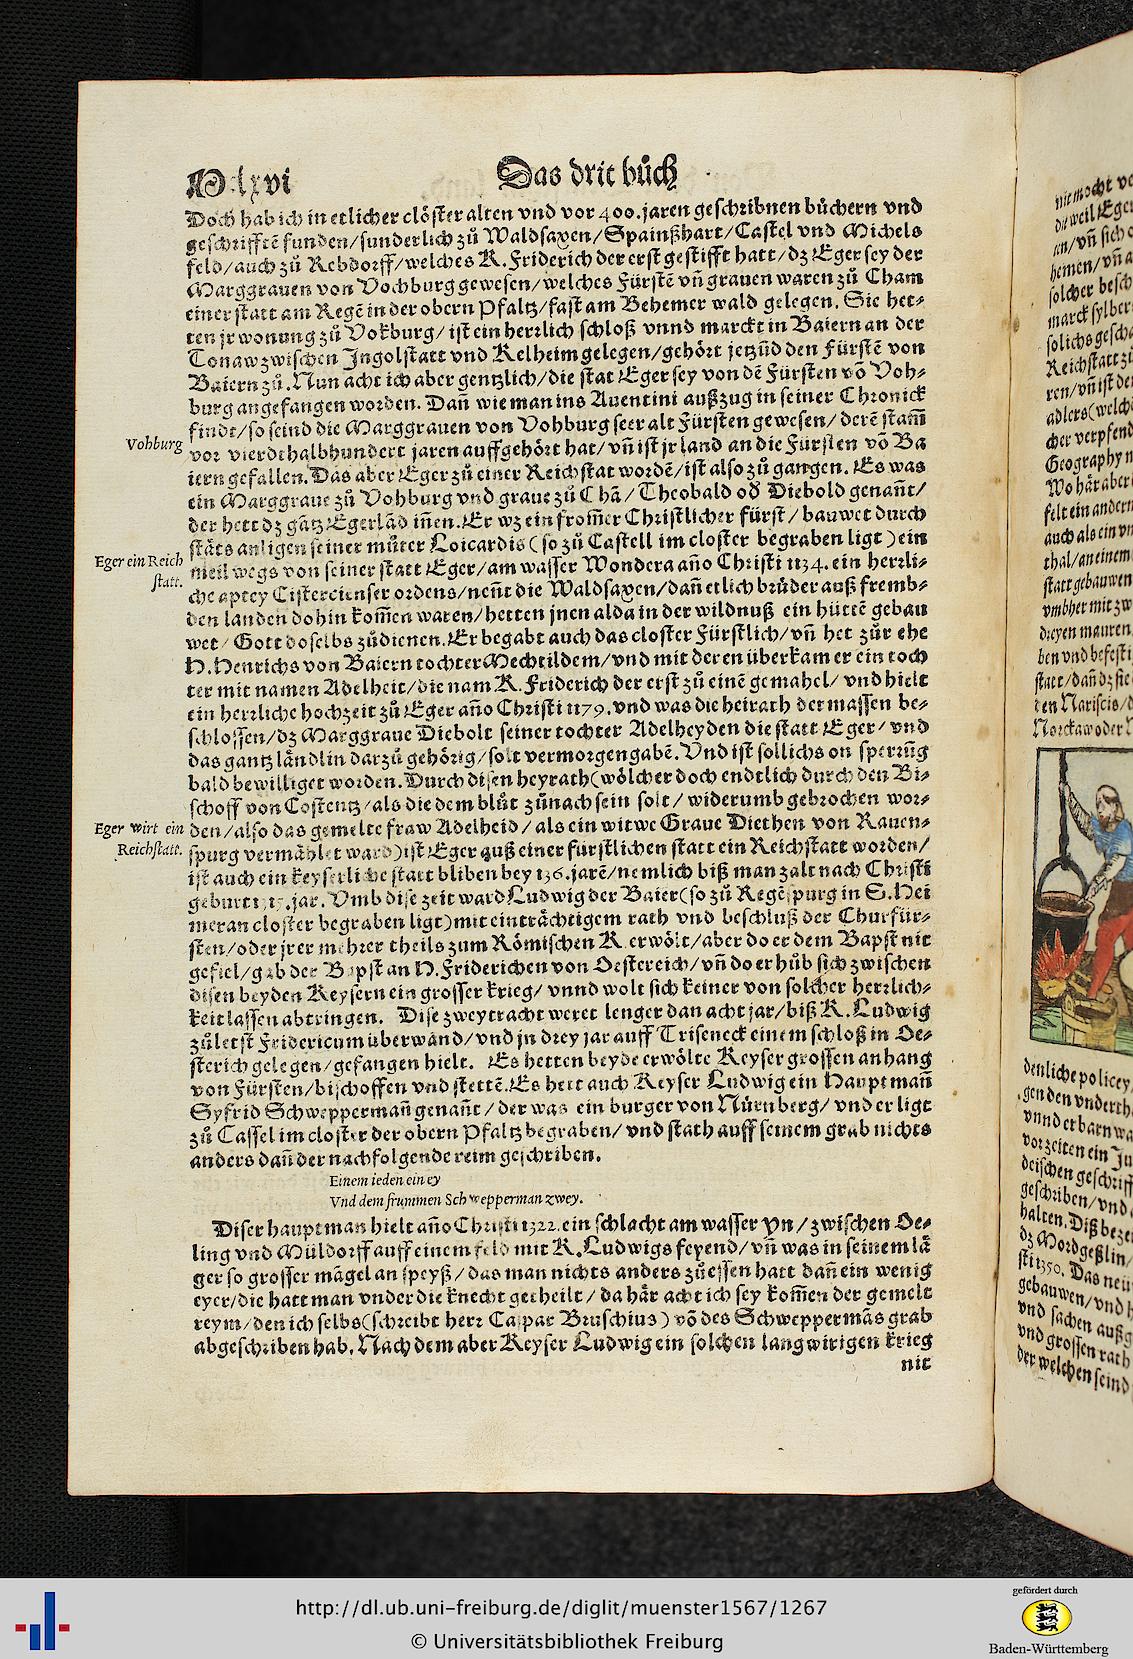 M.lxvi Das drit bůch
Doch hab ich in etlicher clöster alten vnd vor 400. jaren geschribnen bůchern vnd
geschrifftē funden/sunderlich zů Waldsaxen/Spainßhart/Castel vnd Michels
feld/auch zů Rebdorff/welches K. Friderich der erst gestifft hatt/dz Eger sey der
Marggrauen von Vochburg gewesen/welches Fürstē vñ grauen waren zů Cham
einer statt am Regē in der obern Pfaltz/fast am Behemer wald gelegen. Sie het⸗
ten jr wonung zů Vokburg/ist ein herrlich schloß vnnd marckt in Baiern an der
Tonaw zwischen Jngolstatt vnd Kelheim gelegen/gehört jetzūd den Fürstē von
Baiern zů. Nun acht ich aber gentzlich/die stat Eger sey von dē Fürsten vō Voh⸗
burg angefangen worden. Dañ wie man ins Auentini außzug in seiner Chronick
findt/so seind die Marggrauen von Vohburg seer alt Fürsten gewesen/derē stam̄
Vohburg
vor vierdthalbhundert jaren auffgehört hat/vñ ist jr land an die Fürsten vō Ba
iern gefallen. Das aber Eger zů einer Reichstat wordē/ist also zů gangen. Es was
ein Marggraue zů Vohburg vnd graue zů Chā/Theobald od Diebold genañt/
der hett dz gātz Egerlād iñen. Er wz ein from̄er Christlicher fürst/bauwet durch
stäts anligen seiner můter Loicardis (so zů Castell im closter begraben ligt) ein
Eger ein Reich
statt.
meil wegs von seiner statt Eger/am wasser Wondera año Christi 1134. ein herrli⸗
che aptey Cistercienser ordens/neñt die Waldsaxen/dañ etlich brůder auß fremb⸗
den landen dohin kom̄en waren/hetten jnen alda in der wildnuß ein hüttē gebau
wet/Gott doselbs zů dienen. Er begabt auch das closter Fürstlich/vñ het zůr ehe
H. Henrichs von Baiern tochter Mechtildem/vnd mit deren überkam er ein toch
ter mit namen Adelheit/die nam K. Friderich der erst zů einē gemahel/vnd hielt
ein herrliche hochzeit zů Eger año Christi 1179. vnd was die heirath dermassen be⸗
schlossen/dz Marggraue Diebolt seiner tochter Adelheyden die statt Eger/vnd
das gantz ländlin darzů gehörig/solt vermorgengabē. Vnd ist sollichs on sperrūg
bald bewilliget worden. Durch disen heyrath (wölcher doch endtlich durch den Bi⸗
schoff von Costentz/als die dem blůt zů nach sein solt/widerumb gebrochen wor⸗
Eger wirt ein
Reichstatt.
den/also das gemelte fraw Adelheid/als ein witwe Graue Diethen von Rauen⸗
spurg vermählet ward) ist Eger auß einer fürstlichen statt ein Reichstatt worden/
ist auch ein keyserliche statt bliben bey 136. jarē/nemlich biß man zalt nach Christi
geburt 1315. jar. Vmb dise zeit ward Ludwig der Baier (so zů Regēspurg in S. Hei
meran closter begraben ligt) mit einträchtigem rath vnd beschluß der Churfür⸗
sten/oder jrer mehrer theils zum Römischen K. erwölt/aber do er dem Bapst nit
gefiel/gab der Bapst an H. Friderichen von Oestereich/vñ do er hůb sich zwischen
disen beyden Keysern ein grosser krieg/vnnd wolt sich keiner von solcher herrlich⸗
keit lassen abtringen. Dise zweytracht weret lenger dan acht jar/biß K. Ludwig
zůletst Fridericum überwand/vnd jn drey jar auff Triseneck einem schloß in Oe⸗
sterich gelegen/gefangen hielt. Es hetten beyde erwölte Keyser grossen anhang
von Fürsten/bischoffen vnd stettē. Es hett auch Keyser Ludwig ein Hauptmañ
Syfrid Schweppermañ genañt/der was ein burger von Nürnberg/vnd er ligt
zů Cassel im closter der obern Pfaltz begraben/vnd stath auff seinem grab nichts
anders dañ der nachfolgende reim geschriben.
Einem ieden ein ey
Vnd dem frummen Schwepperman zwey.
Diser hauptman hielt año Christi 1322. ein schlacht am wasser Yn/zwischen Oe⸗
ling vnd Müldorff auff einem feld mit K. Ludwigs feyend/vñ was in seinem lä
ger so grosser mägel an speyß/das man nichts anders zů essen hatt dañ ein wenig
eyer/die hatt man vnder die knecht getheilt/da här acht ich sey kom̄en der gemelt
reym/den ich selbs (schreibt herr Caspar Bruschius) vō des Schweppermās grab
abgeschriben hab. Nach dem aber Keyser Ludwig ein solchen langwirigen krieg
nit
http://dl.ub.uni-freiburg.de/diglit/muenster1567/1267
© Universitätsbibliothek Freiburg
gefördert durch
Baden-Württemberg